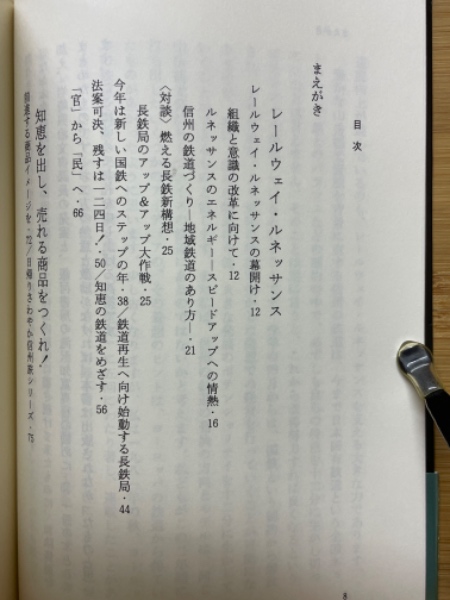 目次
まえがき
レールウェイ・ルネッサンス
レールウェイ・ルネッサンスの幕開け・12
組織と意識の改革に向けて・12
ルネッサンスのエネルギー―スピードアップへの情熱・16
信州の鉄道づくり―地域鉄道のあり方―・21
〈対談〉燃える長鉄新構想・25
長鉄局のアップ&アップ大作戦・25
今年は新しい国鉄へのステップの年・38/鉄道再生へ向け始動する長鉄局・44
法案可決、残すは一二四日!・50/知恵の鉄道をめざす・56
「官」から「民」へ・66
知恵を出し、売れる商品をつくれ!
する商品イメージを・72/日帰りさわやか信州旅シリーズ・75
8